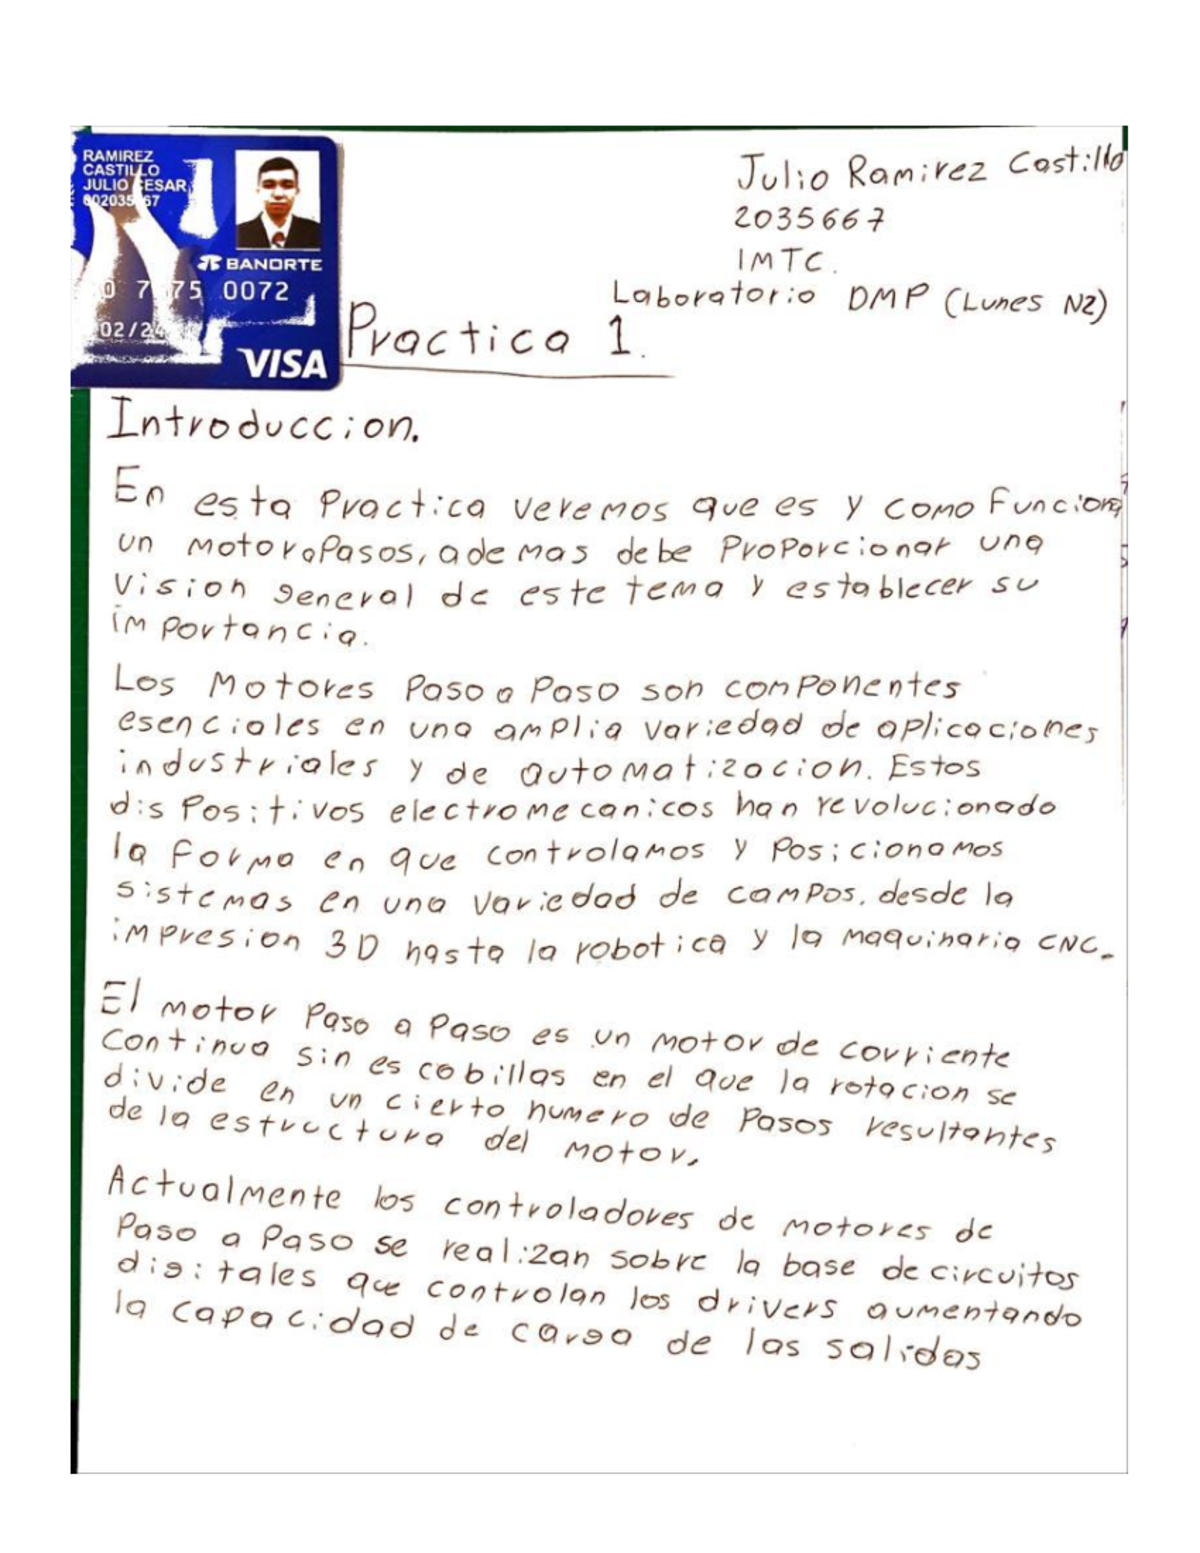 RAMIREZ
CASTILLO
JULIO CESAR
BANORTE
75 0072
02/24
VISA
Julio Ramirez Castillo
2035667
IMTC.
Laboratorio DMP (Lunes N2)
Practica 1.
Introduccion.
En esta Practica veremos que es y como Funciona
un motor a Pasos, ademas debe Proporcionar una
vision general de este tema y establecer su
importancia.
Los Motores Paso a Paso son componentes
esenciales en una amplia variedad de aplicaciones
industriales y de automatizacion. Estos
dispositivos electromecanicos han revolucionado
la forma en que controlamos y Posicionamos
sistemas en una variedad de campos, desde la
impresion 3D hasta la robotica y la maquinaria CNC.
El motor Paso a Paso es un motor de corriente
Continua sin escobillas en el que la rotacion se
divide en un cierto numero de Pasos resultantes
de la estructura del motor.
Actualmente los controladores de motores de
Paso a Paso se realizan sobre la base de circuitos
digitales que controlan los drivers aumentando
la capacidad de carga de las salidas